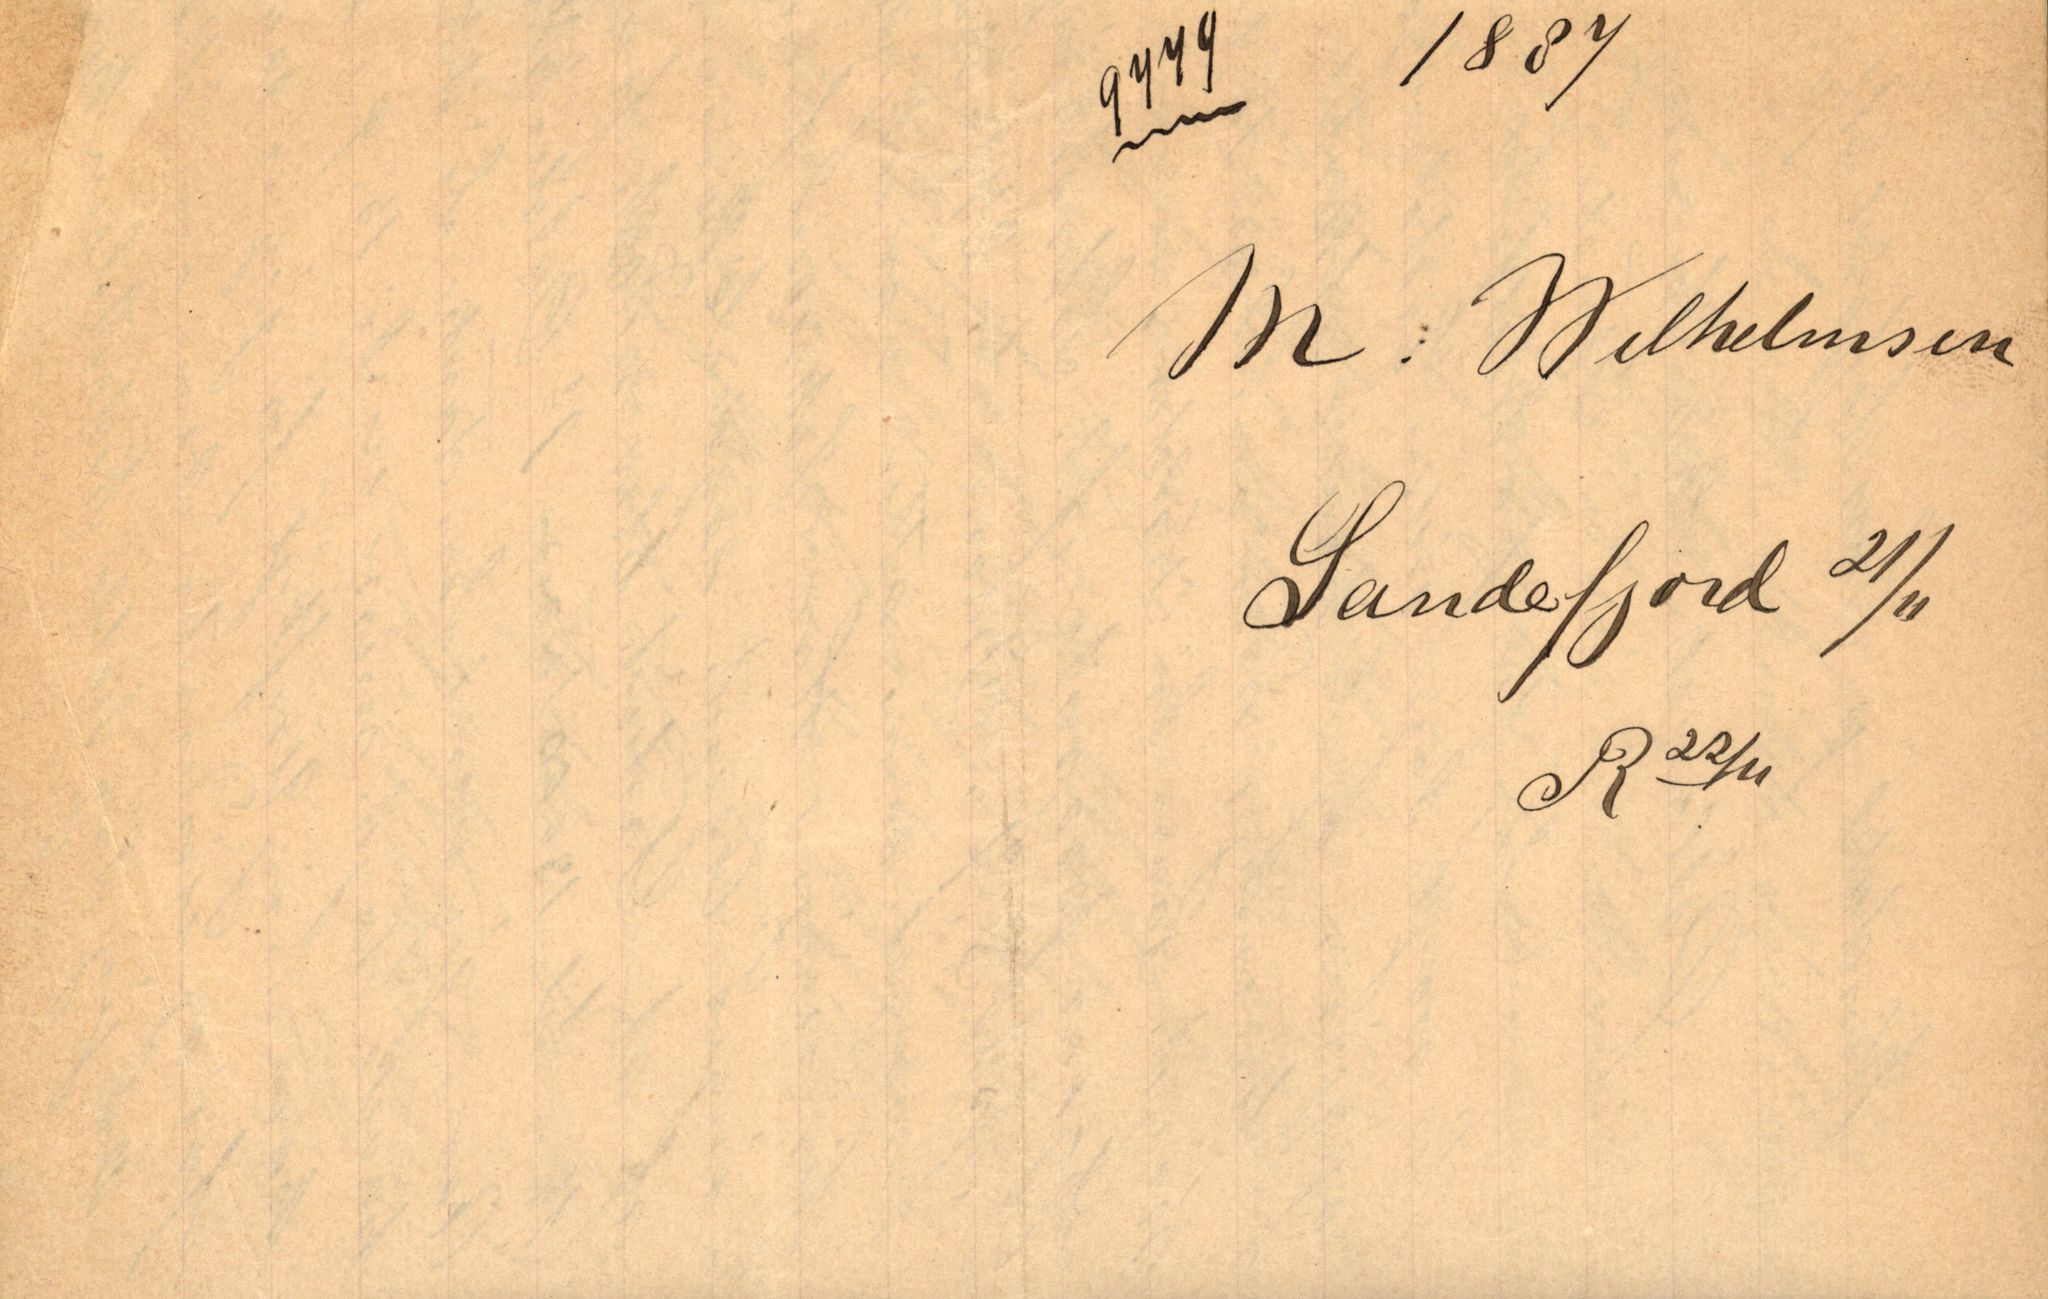 9779 1887
M. Wilhelmsen
Sandefjord 21/11
R 22/11